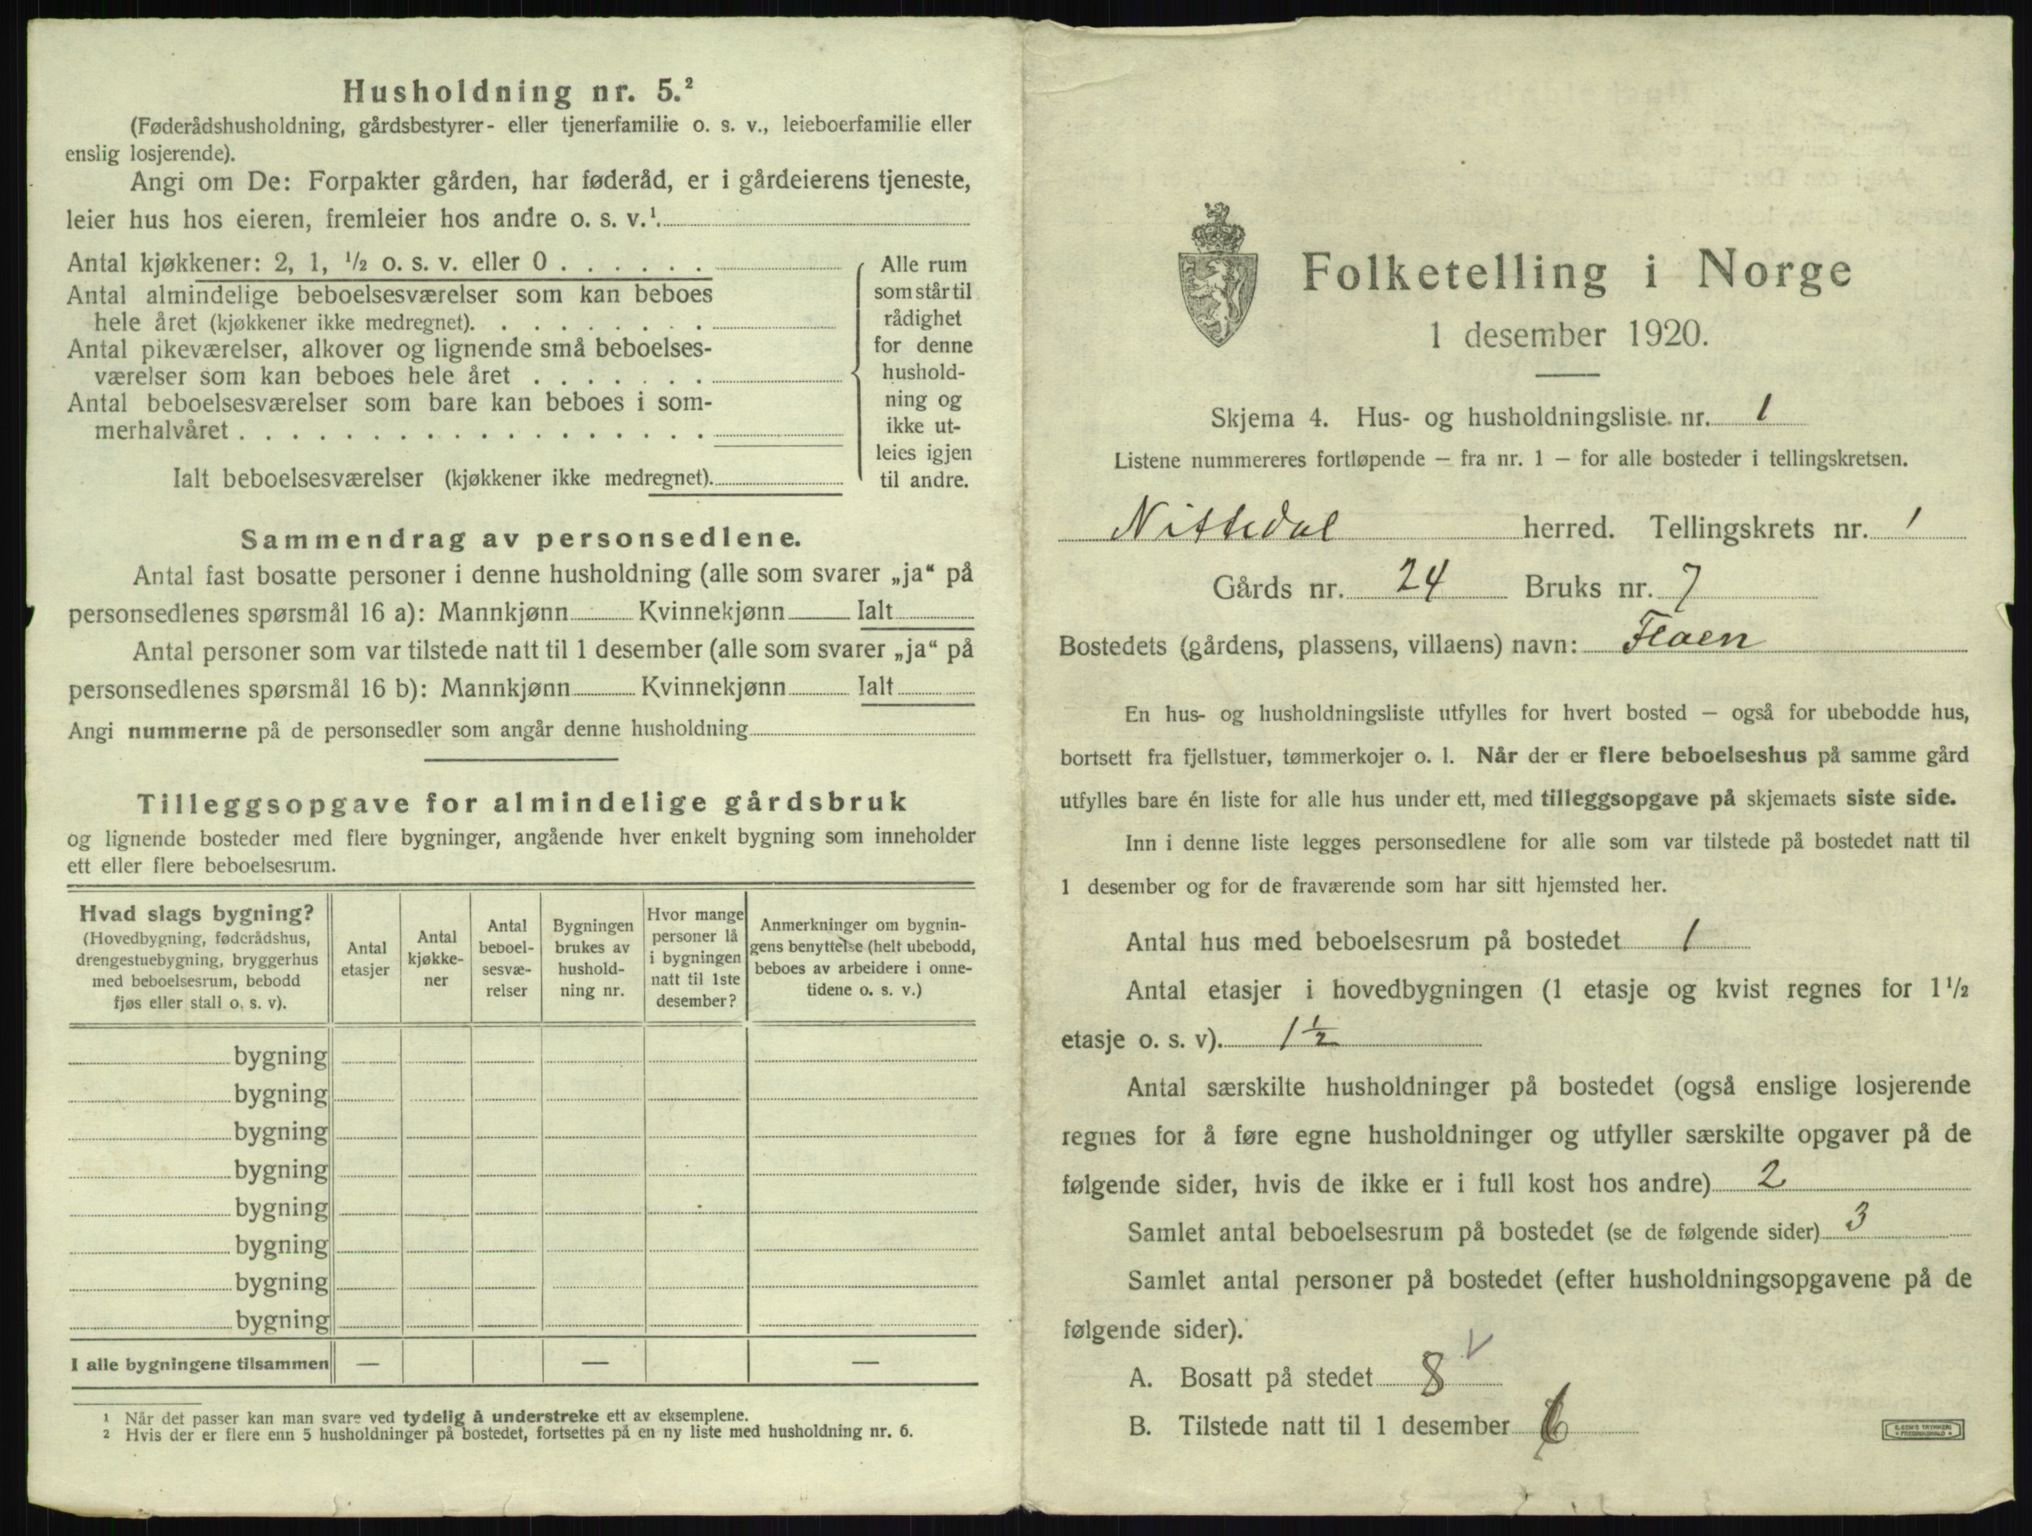 Husholdning nr. 5.²
(Føderådshusholdning, gårdsbestyrer- eller tjenerfamilie o. s. v., leieboerfamilie eller
enslig losjerende).
Angi om De: Forpakter gården, har føderåd, er i gårdeierens tjeneste,
leier hus hos eieren, fremleier hos andre o. s. v.¹.
Antal kjøkkener: 2, 1, ½ o. s. v. eller 0 . . . . . .
Antal almindelige beboelsesværelser som kan beboes
hele året (kjøkkener ikke medregnet). . . . . . . . .
Antal pikeværelser, alkover og lignende små beboelses-
værelser som kan beboes hele året . . . . . . .
Antal beboelsesværelser som bare kan beboes i som-
merhalvåret . . . . . . . . . . . . . . . . . .
Ialt beboelsesværelser (kjøkkener ikke medregnet).
Alle rum
som står til
rådighet
for denne
hushold-
ning og
ikke ut-
leies igjen
til andre.
Sammendrag av personsedlene.
Antal fast bosatte personer i denne husholdning (alle som svarer „ja“ på
personsedlenes spørsmål 16 a): Mannkjønn Kvinnekjønn Ialt
Antal personer som var tilstede natt til 1 desember (alle som svarer „ja“ på
personsedlenes spørsmål 16 b): Mannkjønn Kvinnekjønn Ialt
Angi nummerne på de personsedler som angår denne husholdning
Tilleggsopgave for almindelige gårdsbruk
og lignende bosteder med flere bygninger, angående hver enkelt bygning som inneholder
ett eller flere beboelsesrum.
Hvad slags bygning?
(Hovedbygning, føderådshus,
drengestuebygning, bryggerhus
med beboelsesrum, bebodd
fjøs eller stall o. s. v).
Antal
etasjer
Antal
kjøkke-
ner
Antal
beboel-
sesvæ-
relser
Bygningen
brukes av
hushold-
ning nr.
Hvor mange
personer lå
i bygningen
natt til 1ste
desember?
Anmerkninger om bygnin-
gens benyttelse (helt ubebodd,
beboes av arbeidere i onne-
tidene o. s. v.)
bygning
bygning
bygning
bygning
bygning
bygning
bygning
bygning
I alle bygningene tilsammen — — —
¹ Når det passer kan man svare ved tydelig å understreke ett av eksemplene.
² Hvis der er flere enn 5 husholdninger på bostedet, fortsettes på en ny liste med husholdning nr. 6.
Folketelling i Norge
1 desember 1920.
Skjema 4. Hus- og husholdningsliste nr. 1
Listene nummereres fortløpende – fra nr. 1 – for alle bosteder i tellingskretsen.
Nittedal herred. Tellingskrets nr. 1
Gårds nr. 24 Bruks nr. 7
Bostedets (gårdens, plassens, villaens) navn: Floen
En hus- og husholdningsliste utfylles for hvert bosted – også for ubebodde hus,
bortsett fra fjellstuer, tømmerkojer o. l. Når der er flere beboelseshus på samme gård
utfylles bare én liste for alle hus under ett, med tilleggsopgave på skjemaets siste side.
Inn i denne liste legges personsedlene for alle som var tilstede på bostedet natt til
1 desember og for de fraværende som har sitt hjemsted her.
Antal hus med beboelsesrum på bostedet 1
Antal etasjer i hovedbygningen (1 etasje og kvist regnes for 1½
etasje o. s. v). 1½
Antal særskilte husholdninger på bostedet (også enslige losjerende
regnes for å føre egne husholdninger og utfyller særskilte opgaver på de
følgende sider, hvis de ikke er i full kost hos andre) 2
Samlet antal beboelsesrum på bostedet (se de følgende sider) 3
Samlet antal personer på bostedet (efter husholdningsopgavene på de
følgende sider).
A. Bosatt på stedet 8 √
B. Tilstede natt til 1 desember 6